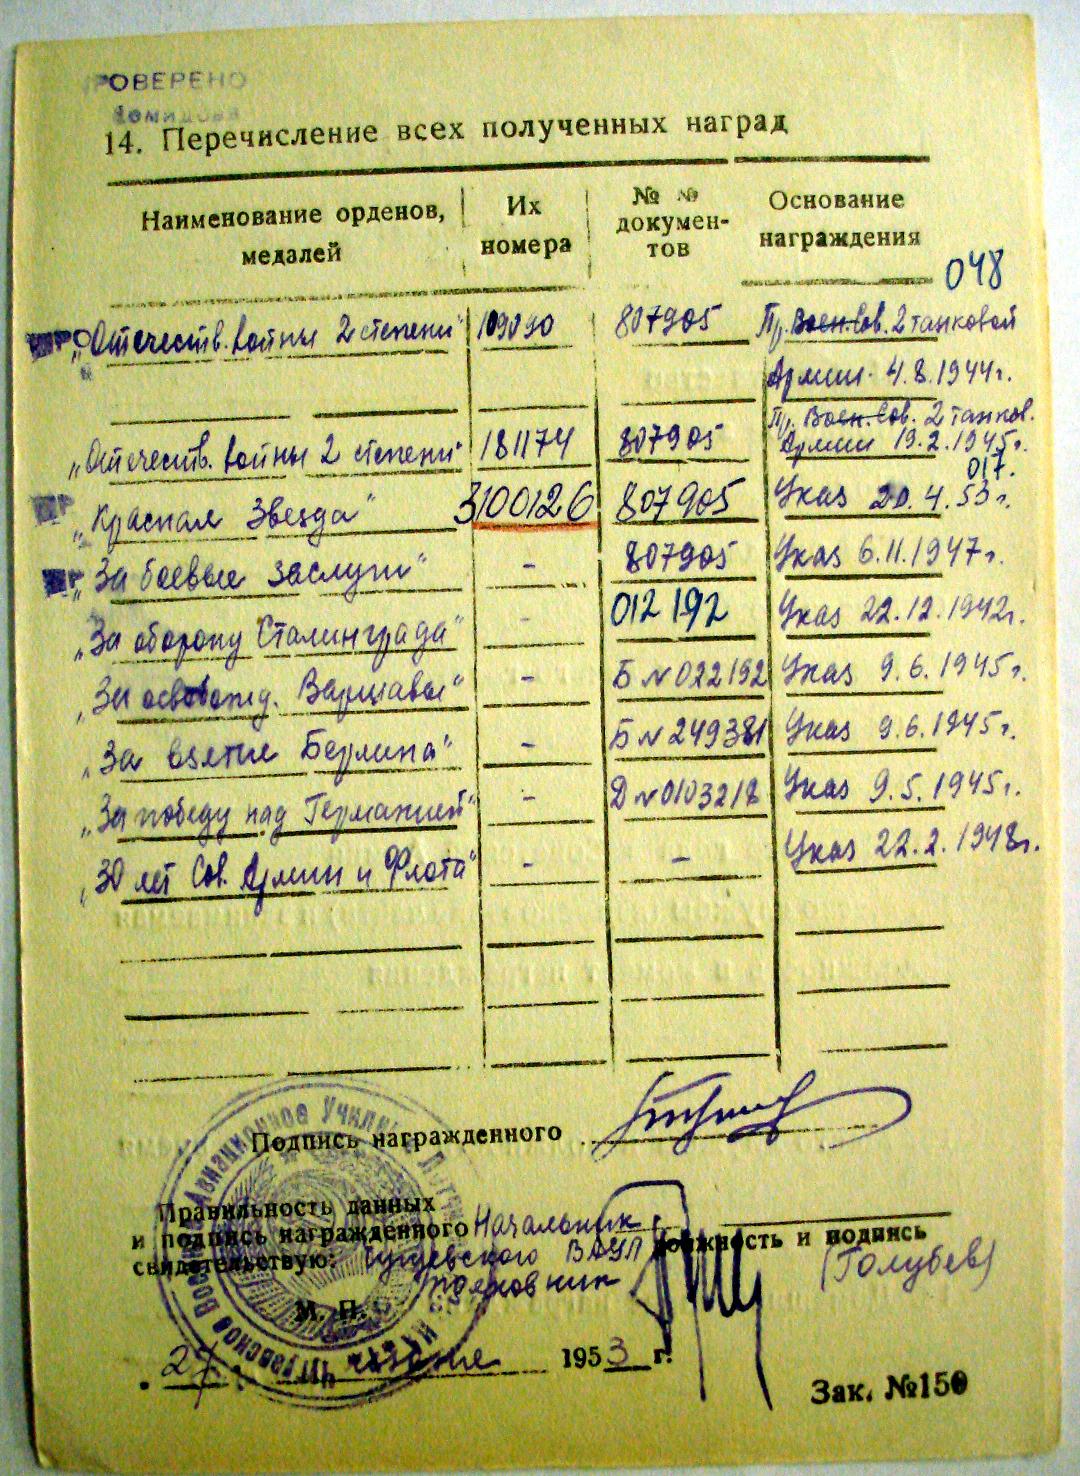 ПРОВЕРЕНО
14. Перечисление всех полученных наград
Наименование орденов, медалей | Их номера | №№ докумен-тов | Основание награждения
048
„Отечеств. войны 2 степени" 109090 807905 Пр. Воен. Сов. 2 танковой
Армии 4.8.1944г.
Пр. Воен. Сов. 2 танков.
„Отечеств. войны 2 степени" 181174 807905 Армии 19.2.1945г.
017.
„Красная Звезда" 3100126 807905 Указ 20.4.53г.
„За боевые заслуги" - 807905 Указ 6.11.1947г.
„За оборону Сталинграда" - 012192 Указ 22.12.1942г.
„За освобожд. Варшавы" - Б №022192 Указ 9.6.1945г.
„За взятие Берлина" - Б №249381 Указ 9.6.1945г.
„За победу над Германией" - Д №0103218 Указ 9.5.1945г.
„30 лет Сов. Армии и Флота" - - Указ 22.2.1948г.
Подпись награжденного
Правильность данных
и подпись награжденного Начальник
свидетельствую: ВАУЛ должность и подпись
полковник (Голубев)
М. П.
27 1953 г.
Зак. №150
Авиационное Училище